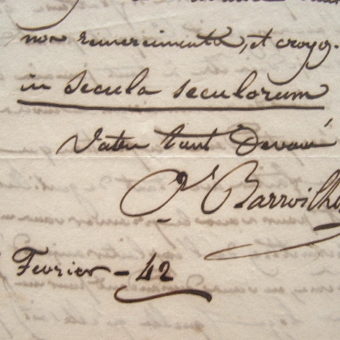 mon remerciments, et croyez
in secula seculorum
Votre tout Devoué
P. Barroilhe
Fevrier - 42